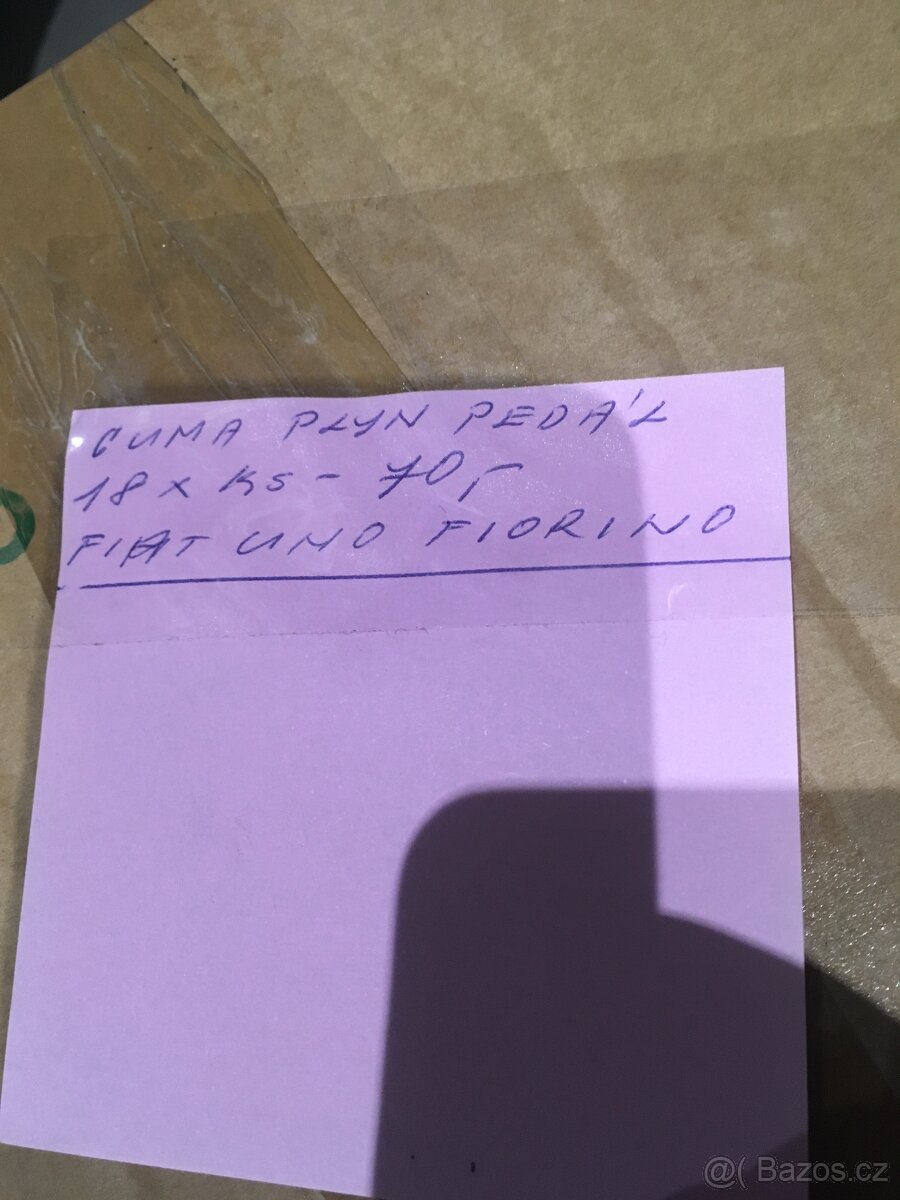 GUMA PLYN PEDÁL
18 x KS - 70,-
FIAT UNO FIORINO
@( Bazos.cz